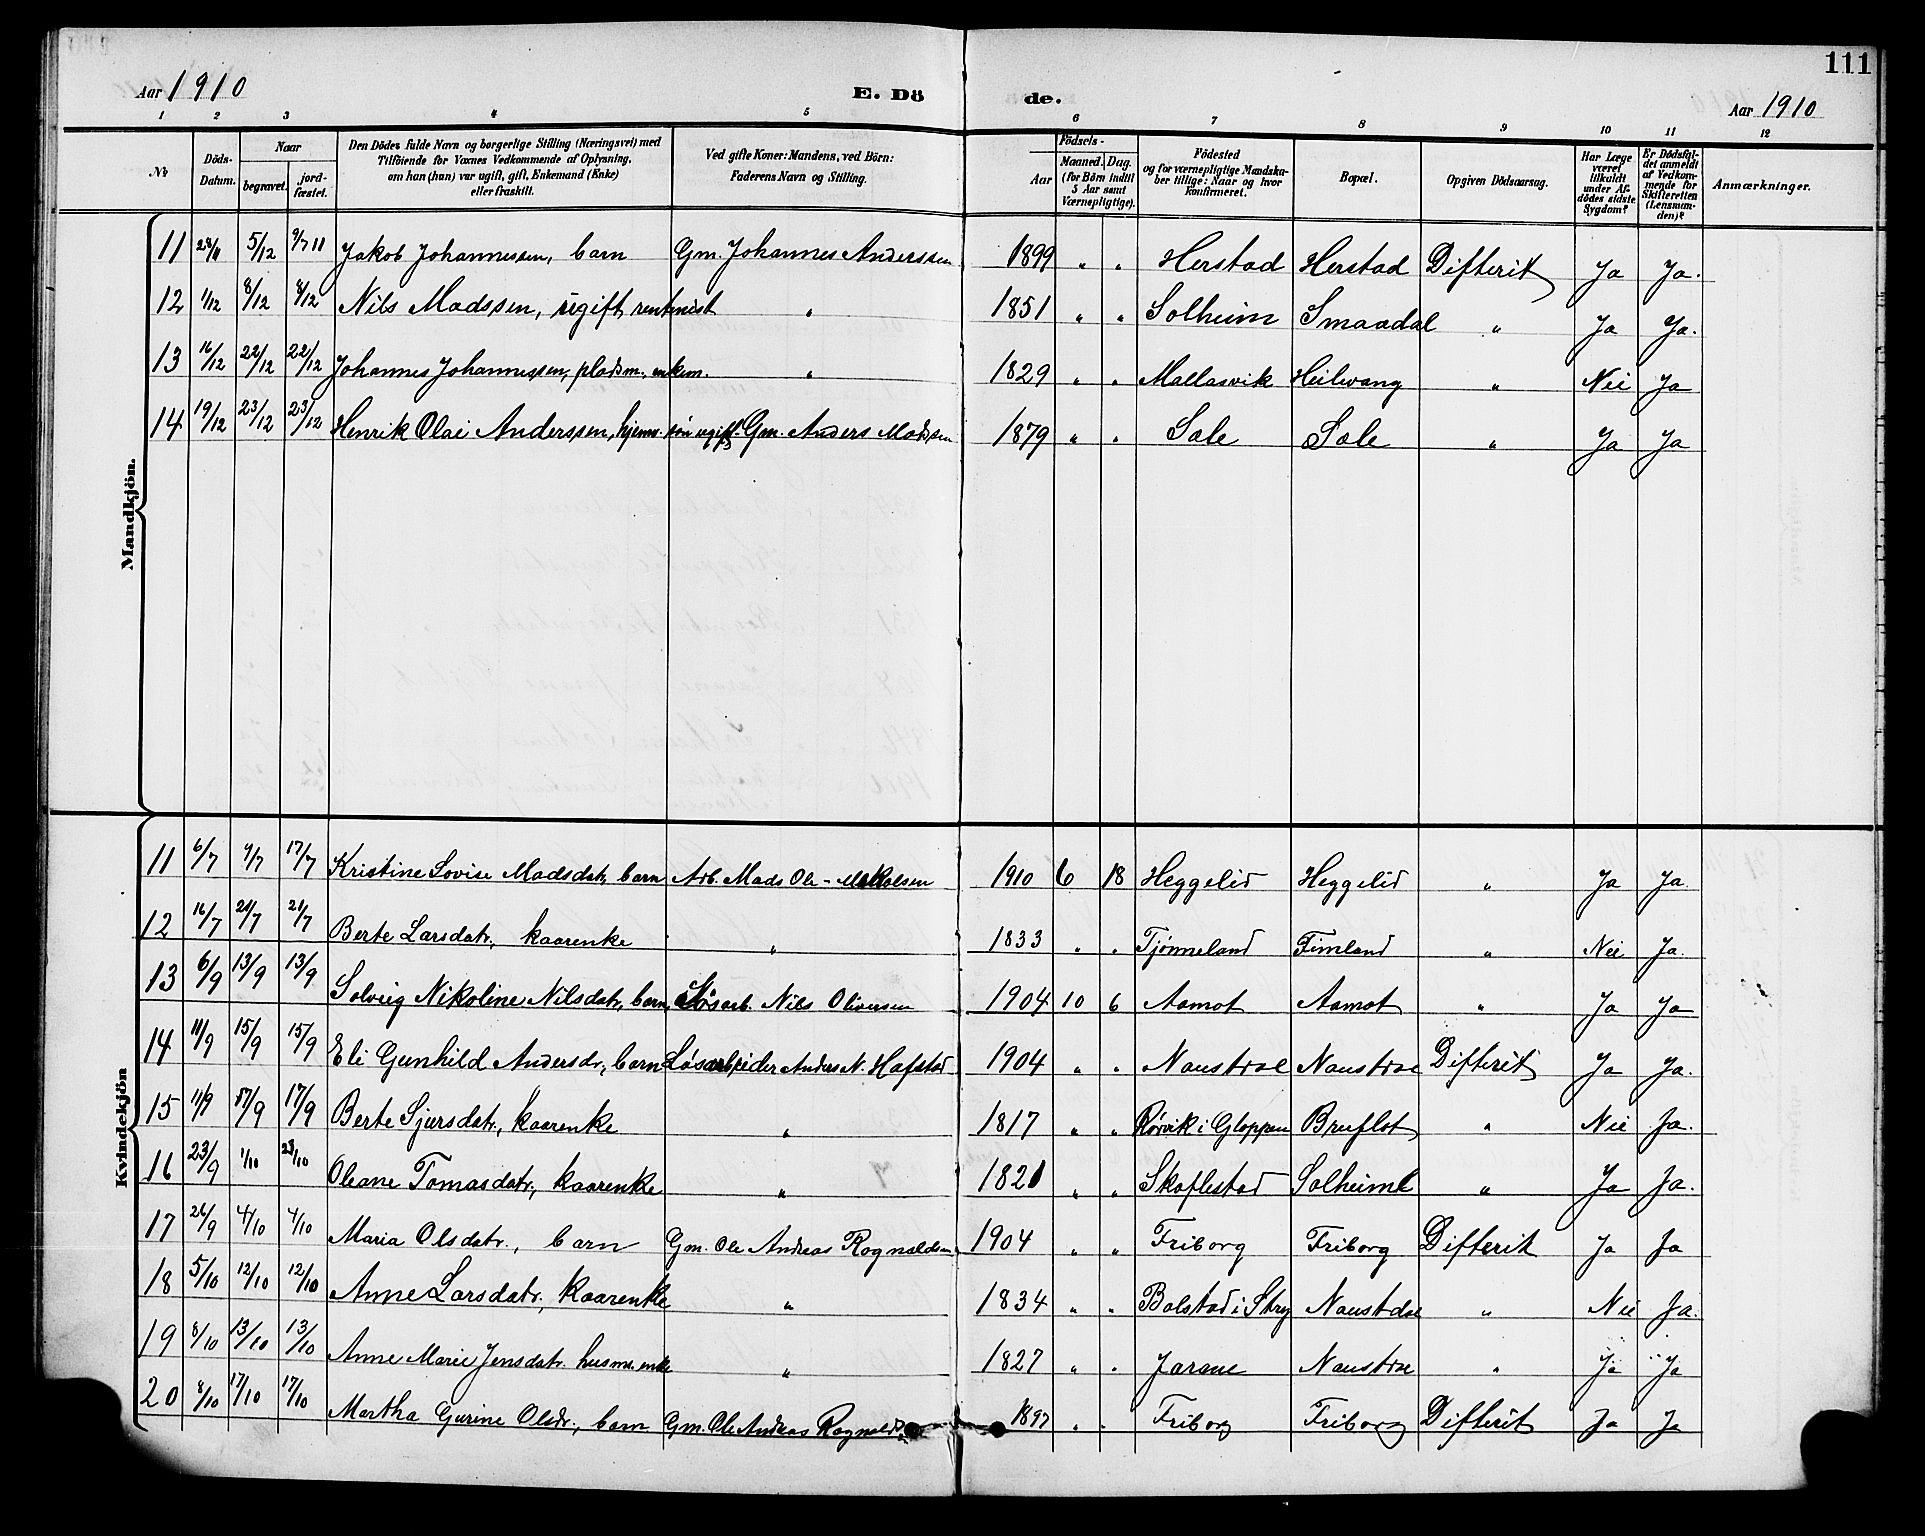 111
Aar 1910 E. Dö de. Aar 1910
1 2 3 4 5 6 7 8 9 10 11 12
№ Döds-Datum. Naar begravet. jord-fæstet. Den Dödes fulde Navn og borgerlige Stilling (Næringsvei) med Tilföiende for Voxnes Vedkommende af Oplysning, om han (hun) var ugift, gift, Enkemand (Enke) eller fraskilt. Ved gifte Koner: Mandens, ved Börn: Faderens Navn og Stilling. Födsels- Aar Maaned. Dag. (for Börn indtil 5 Aar samt Værnepligtige). Födested og for værnepligtige Mandskaber tillige: Naar og hvor konfirmeret. Bopæl. Opgiven Dödsaarsag. Har Læge været tilkaldt under Afdödes sidste Sygdom? Er Dödsfaldet anmeldt af Vedkommende for Skifteretten (Lensmanden)? Anmærkninger.
Mandkjön.
11 5/12 9/7 11 Jakob Johannessen, barn Gm. Johannes Anderssen 1899 " " Herstad Herstad Difterit Ja Ja.
12 1/12 8/12 8/12 Nils Madssen, ugift, rentenist " 1851 " " Solheim Smaadal " Ja Ja.
13 16/12 22/12 22/12 Johannes Johannessen, pladsm., enkem. " 1829 " " Mallasvik Heilevang " Nei Ja
14 19/12 23/12 23/12 Henrik Olai Anderssen, hjemv. søn ugift. Gm. Anders Madssen 1879 " " Sæle Sæle " Ja Ja
Kvindekjön
11 6/7 9/7 17/7 Kristine Lovise Madsdatr, barn Arb. Mads Ole- 1910 6 18 Heggelid Heggelid " Ja Ja.
12 16/7 21/7 21/7 Berte Larsdatr., kaarenke " 1833 " " Tjønneland Fimland " Nei Ja.
13 6/9 13/9 13/9 Solveig Nikoline Nilsdatr, barn, Løsarb. Nils Oliversen 1904 10 6 Aamot Aamot " Ja Ja
14 11/9 15/9 15/9 Eli Gunhild Andersdr., barn Løsarbeider Anders N. Hafstad 1904 " " Naustdal Naustdal Difterit Ja Ja.
15 11/9 17/9 17/9 Berte Sjursdatr., kaarenke " 1817 " " Rørvik i Gloppen Bruflot " Nei Ja.
16 23/9 1/10 23/10 Oleane Tomasdatr., kaarenke " 1821 " " Skaflestad Solheim " Ja Ja.
17 26/9 4/10 4/10 Maria Olsdatr., barn Gm. Ole Andreas Rognaldsen 1904 " " Friborg Friborg Difterit Ja Ja
18 5/10 12/10 12/10 Anne Larsdatr., kaarenke " 1834 " " Bolstad i Stry Naustdal " Nei Ja.
19 8/10 13/10 13/10 Anne Marie Jensdatr. husm. enke " 1827 " " Jarane Naustdal " Ja Ja
20 8/10 17/10 17/10 Martha Gurine Olsdr., barn Gm. Ole Andreas Rognalds. 1897 " " Friborg Friborg Difterit Ja Ja